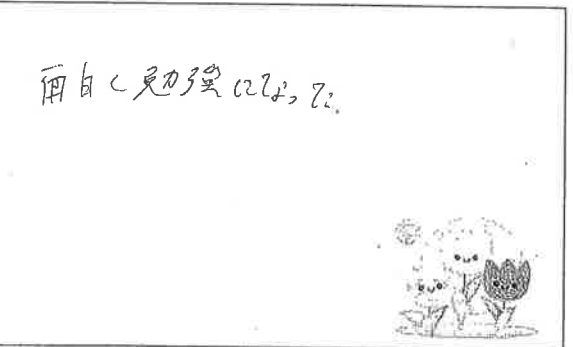 面白く勉強になった。